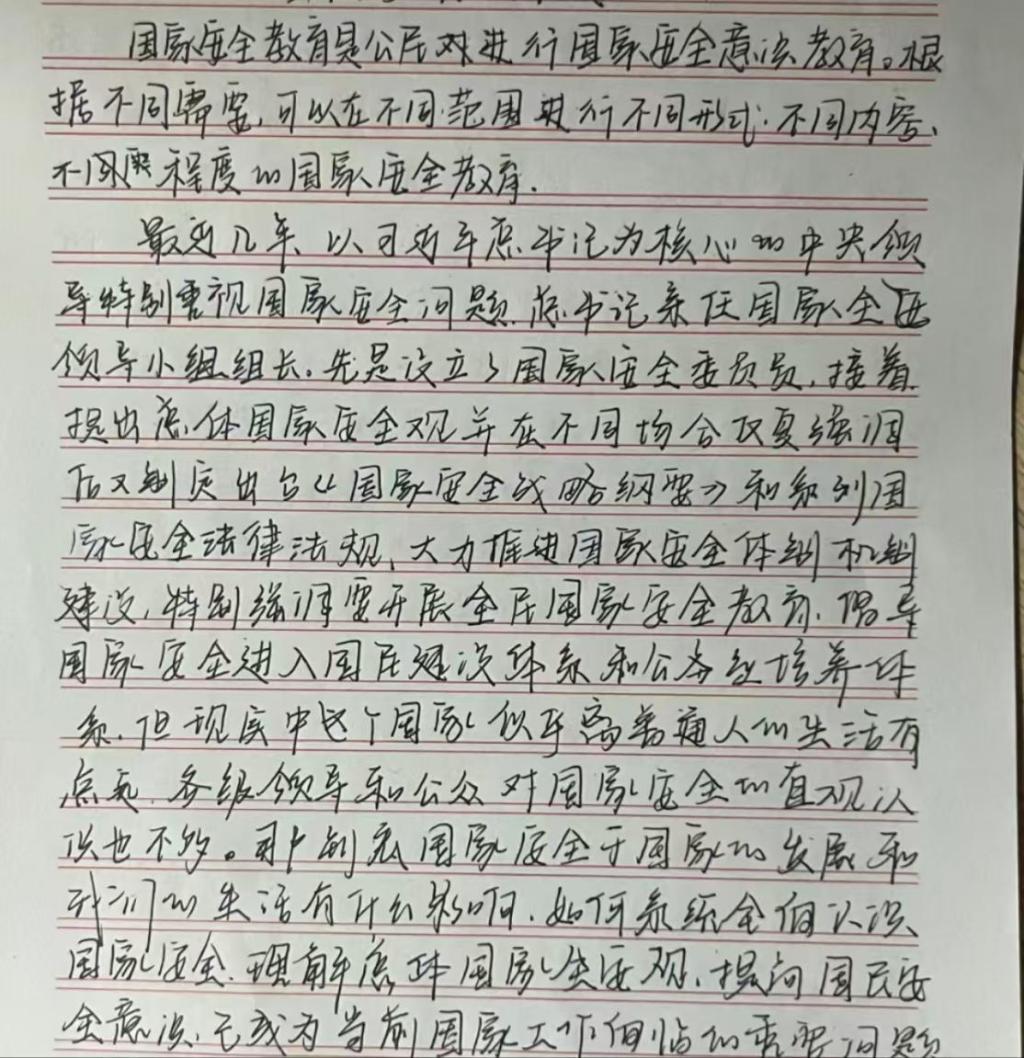 国家安全教育是公民对进行国家安全意识教育。根
据不同需要,可以在不同范围进行不同形式.不同内容、
不同 程度的国家安全教育.
最近几年、以习近平总书记为核心的中央领
导特别重视国家安全问题.总书记亲任国家全安
领导小组组长.先是设立了国家安全委员员,接着
提出总体国家安全观并在不同场合反复强调
后又制定出台《国家安全战略纲要》和系列国
家安全法律法规、大力推进国家安全体制机制
建设,特别强调要开展全民国家安全教育.倡导
国家安全进入国民建设体系和公务 培养体
系.但现实中这个国家似乎离普通人的生活有
点远.各级领导和公众对国家安全的直观认
识也不够。 国家安全于国家的发展和
我们的生活有什么影响.如何系统全面认识
国家安全.理解总体国家 安观.提问国民安
全意识.已成为当前国家工作面临的重要问题